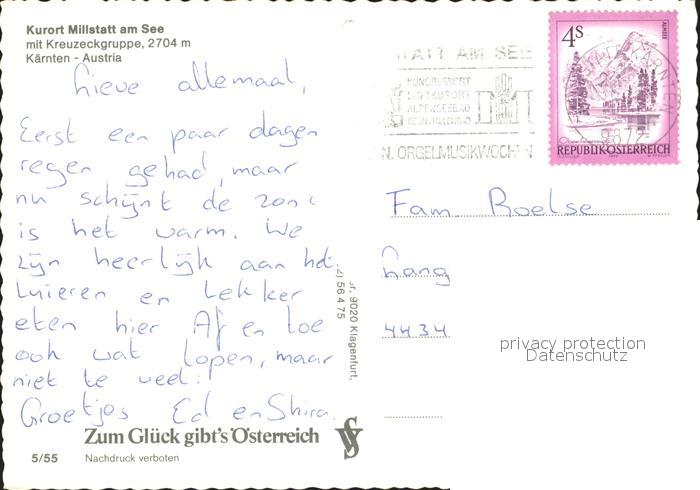 Kurort Millstatt am See
mit Kreuzeckgruppe, 2704 m
Kärnten - Austria
Lieve allemaal,
Eerst een paar dagen
regen gehad, maar
nu schijnt de zon
is het warm. We
zijn heerlijk aan het
luieren en lekker
eten hier Af en toe
ook wat lopen, maar
niet te veel!
Groetjes Ed en Shira.
Zum Glück gibt's Österreich
5/55
Nachdruck verboten
9020 Klagenfurt,
56 4 75
TATT AM SEE
KONGRESSORT
LUFTKURORT
ALPENSEEBAD
N. ORGELMUSIKWOCHEN
4s
ALMSEE
REPUBLIK ÖSTERREICH
Fam. Roelse
Lang
4434
privacy protection
Datenschutz